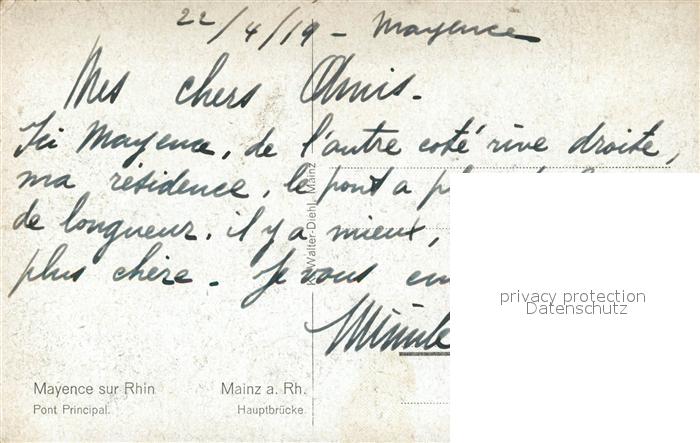 22/4/19 - Mayence
Mes chers Amis.
Ici Mayence, de l'autre coté rive droite,
ma résidence, le pont a
de longueur. il y a mieux,
plus chère. Je vous
K. Walter-Diehl, Mainz
privacy protection
Datenschutz
Mayence sur Rhin
Pont Principal.
Mainz a. Rh.
Hauptbrücke